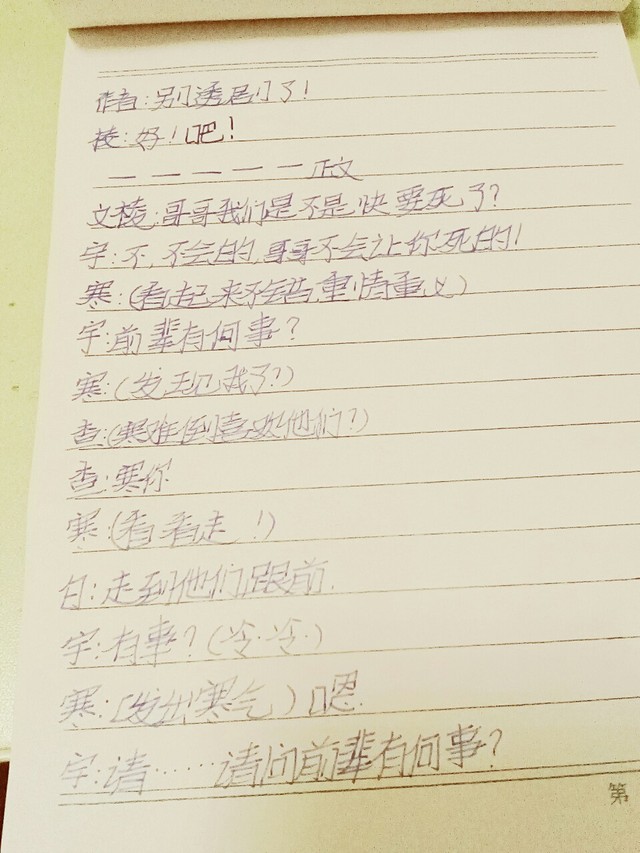 作者:别透剧了!
棱:好!吧!
— — — — — 正文
文棱:哥哥我们是不是快要死了?
宇:不,不会的,哥哥不会让你死的!
寒:(看起来 重情重义)
宇:前辈有何事?
寒:(发现我了?)
查:(寒难倒喜欢他们?)
查:寒你
寒:(看看走!)
白:走到他们跟前.
宇:有事?(冷·冷·)
寒:(发出寒气)嗯.
宇:请……请问前辈有何事?
第